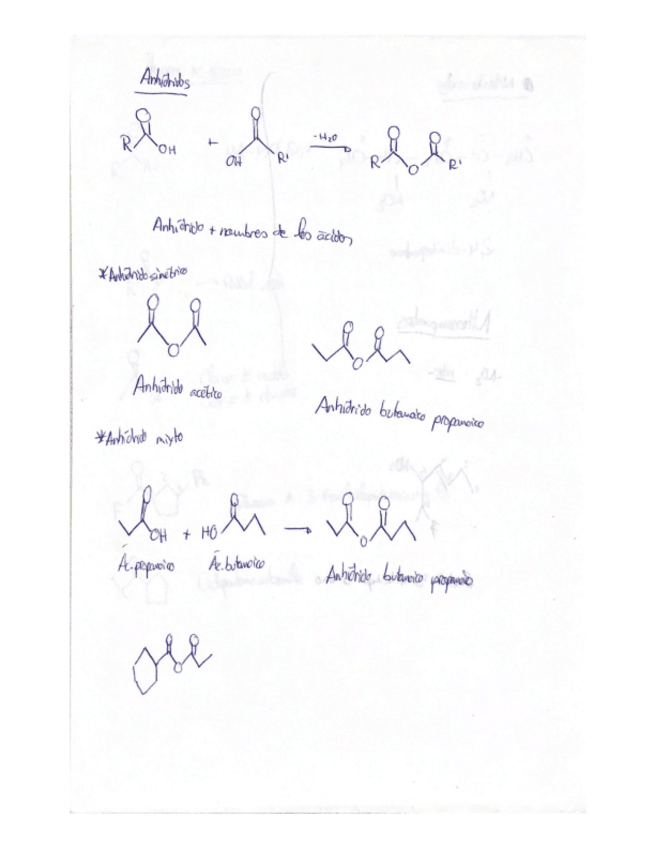 Anhídridos
R OH + OH R' -H₂O R O R'
Anhídrido + nombres de los ácidos
*Anhídrido simétrico
O O O
O O O
Anhídrido acético
Anhídrido butanoico propanoico
*Anhídrido mixto
O OH + HO O O O O
Ác. propanoico Ác. butanoico Anhídrido butanoico propanoico
O O O